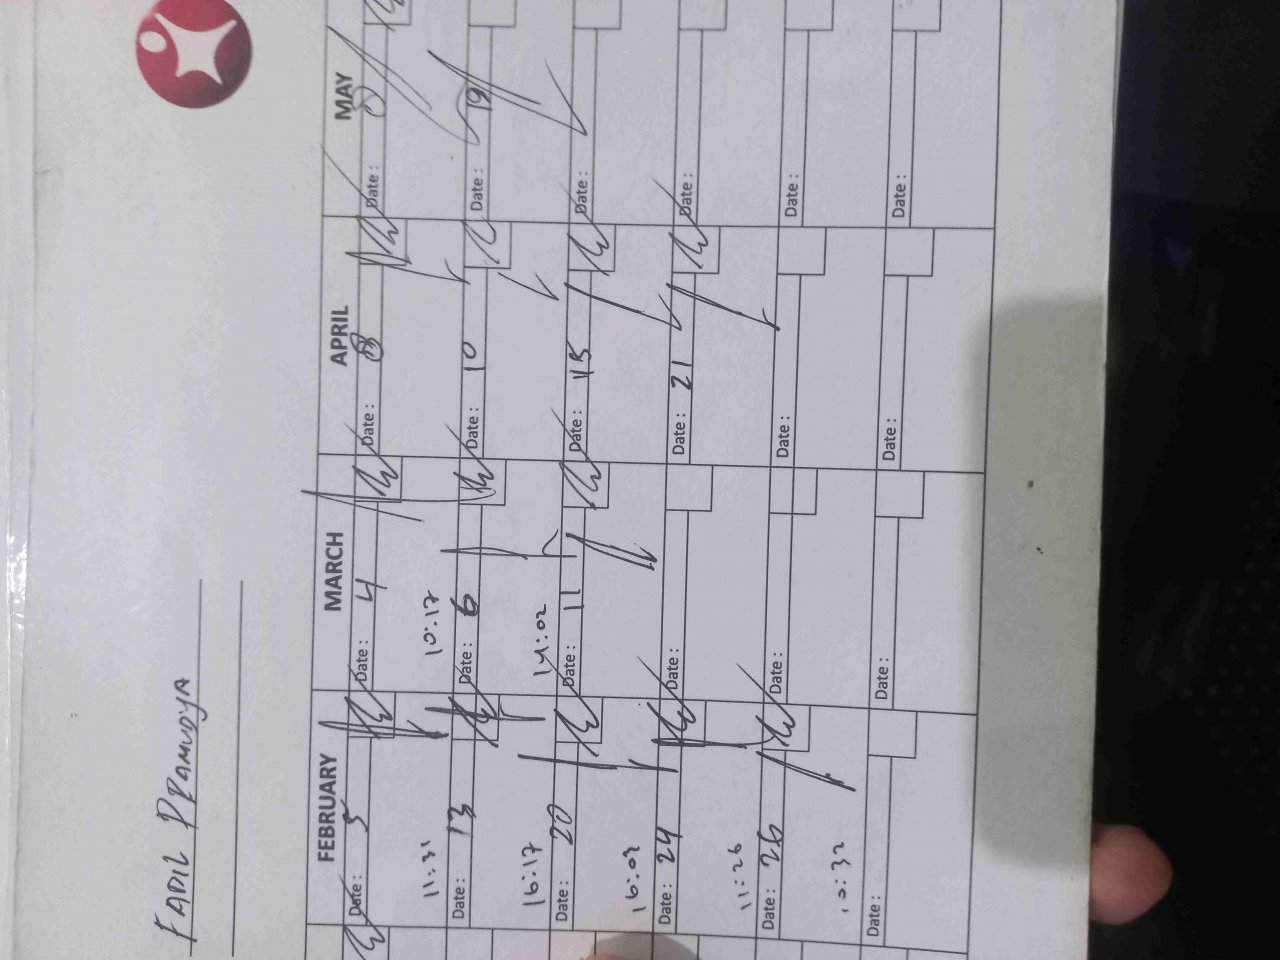 FADIL PRAMUDYA
FEBRUARY
MARCH
APRIL
MAY
Date : 5
Date : 4
Date : 8
Date :
11:31
10:17
Date : 13
Date : 6
Date : 10
Date : 19
16:17
14:02
Date : 20
Date : 11
Date : 15
Date :
16:03
Date : 24
Date :
Date : 21
Date :
11:26
Date : 26
Date :
Date :
Date :
10:32
Date :
Date :
Date :
Date :